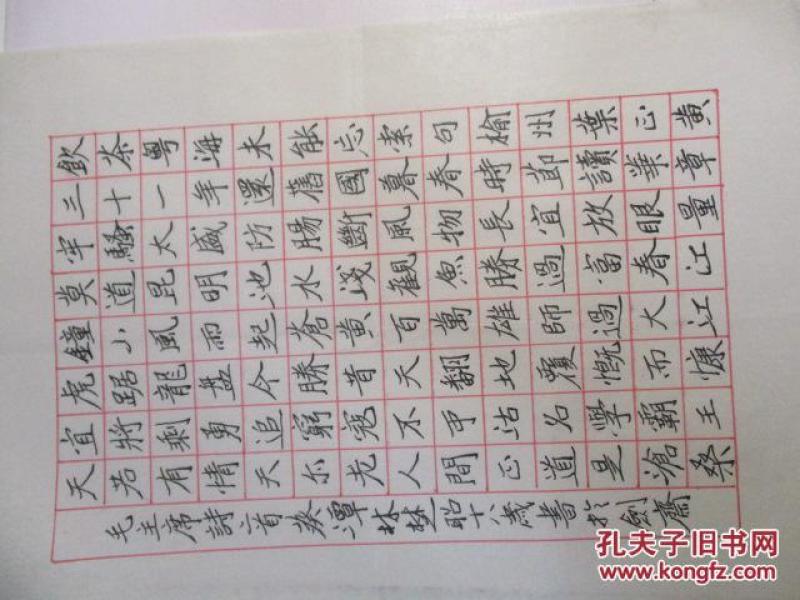 飲茶粤海未能忘索句渝州葉正黄
三十一年還舊國暮春時節讀華章
牢騷太盛防腸斷風物長宜放眼量
莫道昆明池水淺觀魚勝過富春江
鐘山風雨起蒼黄百萬雄師過大江
虎踞龍盤今勝昔天翻地覆慨而慷
宜將剩勇追窮寇不可沽名學霸王
天若有情天亦老人間正道是滄桑
毛主席詩二首葵潭林楚昭十八歲書於劍齋
孔夫子旧书网
www.kongfz.com